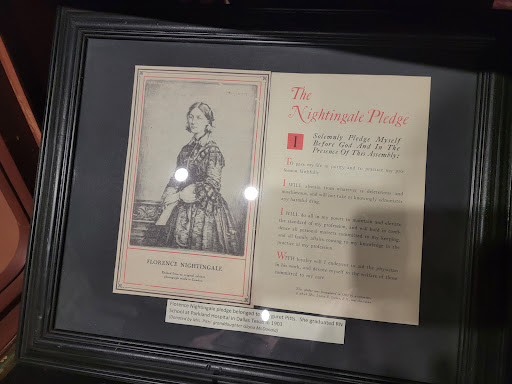 FLORENCE NIGHTINGALE
The
Nightingale Pledge
I Solemnly Pledge Myself
Before God And In The
Presence Of This Assembly;
To pass my life in purity and to practice my pro
fession faithfully.
I WILL abstain from whatever is deleterious and
mischievous, and will not take or knowingly administer
any harmful drug.
I WILL do all in my power to maintain and elevate
the standard of my profession, and will hold in confi-
dence all personal matters committed to my keeping,
and all family affairs coming to my knowledge in the
practice of my profession.
WITH loyalty will I endeavor to aid the physician
in his work, and devote myself to the welfare of those
committed to my care.
Florence Nightingale pledge belonged to Pitts. She graduated RN
School at Parkland Hospital in Dallas Texas 1901